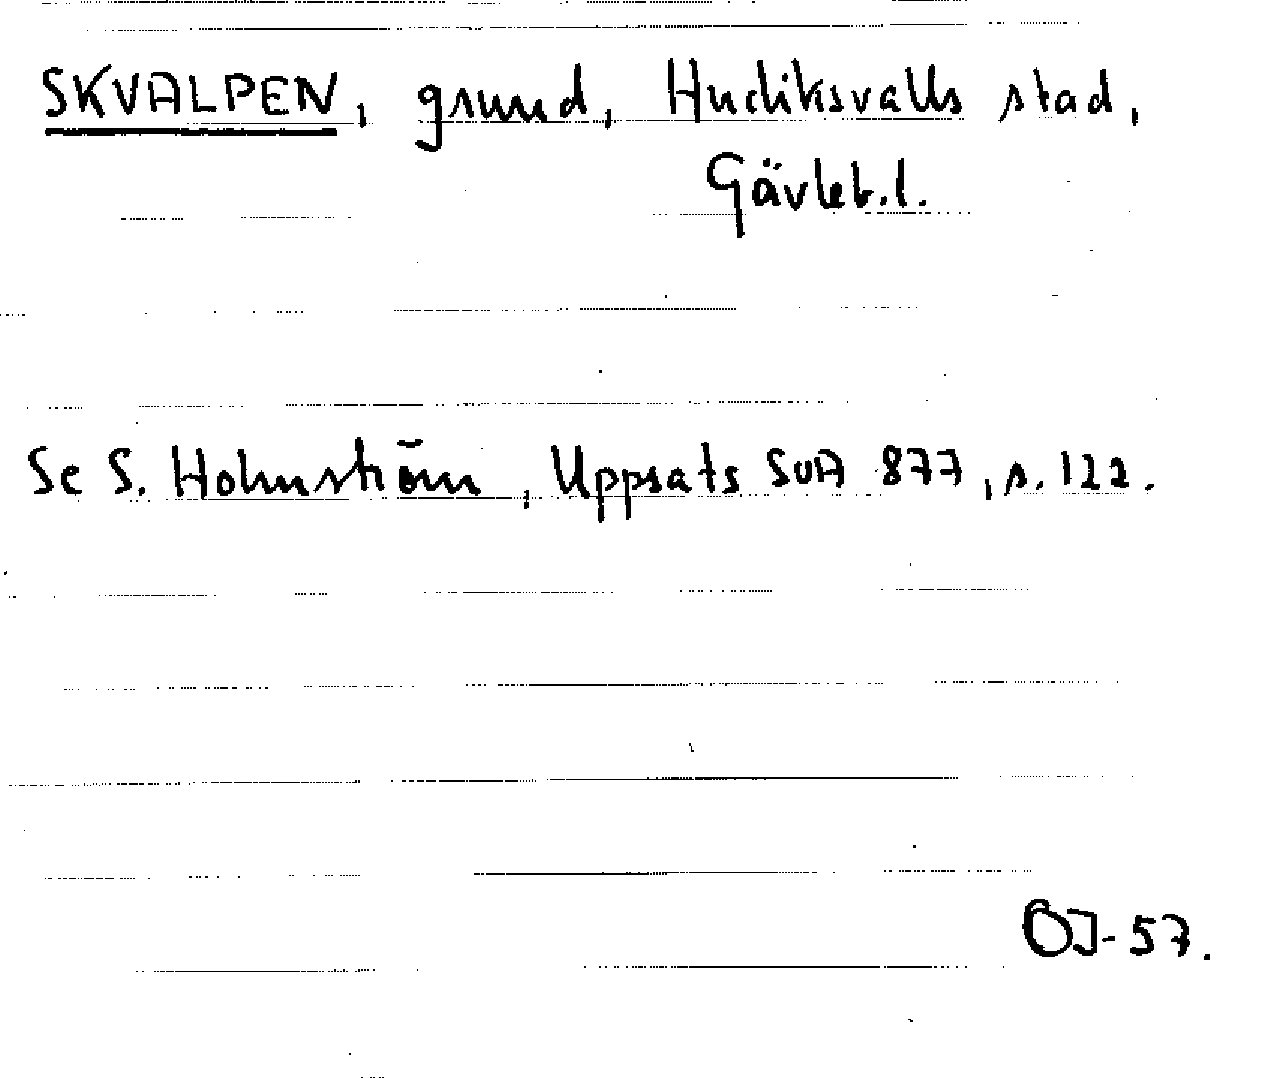 SKVALPEN, grund, Hudiksvalls stad,
Gävleb.l.
Se S. Holmström, Uppsats SOA 877, s. 122.
ÖJ-57.